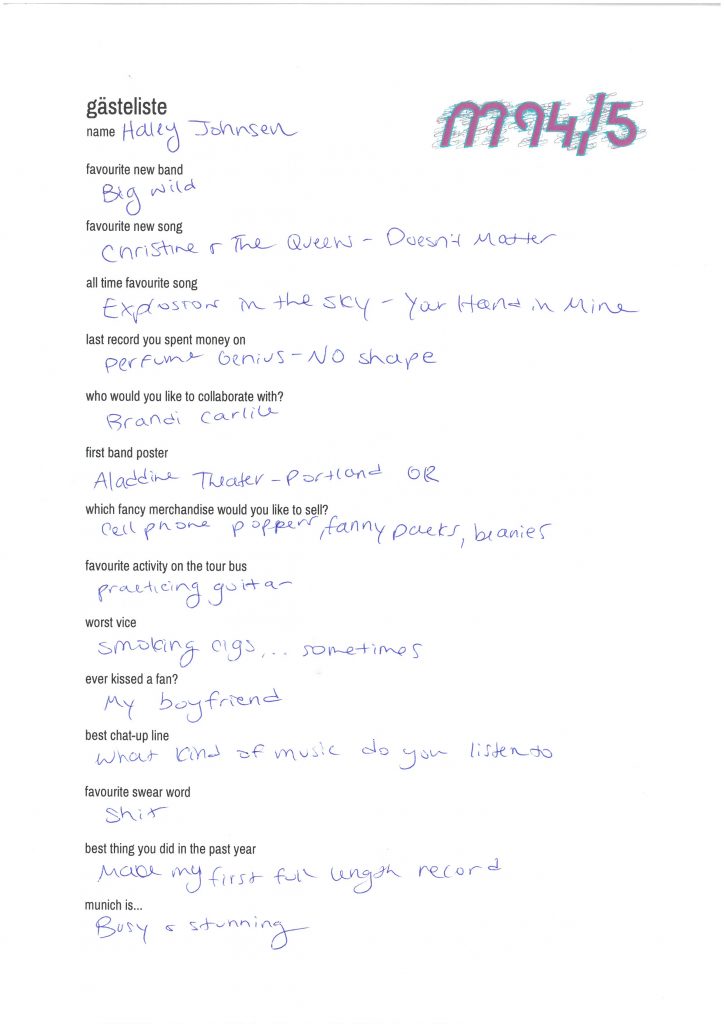 gästeliste
M94/5
name Haley Johnsen
favourite new band
Big Wild
favourite new song
Christine & The Queens - Doesn't Matter
all time favourite song
Explosions in the sky - Your Hand in Mine
last record you spent money on
Perfume Genius - No shape
who would you like to collaborate with?
Brandi Carlile
first band poster
Aladdine Theater - Portland OR
which fancy merchandise would you like to sell?
cell phone poppers, fanny packs, beanies
favourite activity on the tour bus
practicing guitar
worst vice
smoking cigs,... sometimes
ever kissed a fan?
My boyfriend
best chat-up line
what kind of music do you listen to
favourite swear word
Shit
best thing you did in the past year
Made my first full length record
munich is...
Busy & stunning